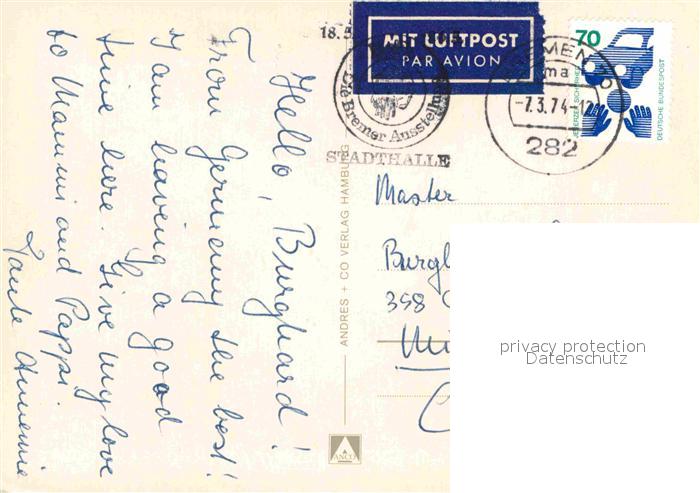 Hello, Burghard!
From Germany the best!
I am having a good
time here. Give my love
to Mammi and Pappi.
Tante Annemie
ANDRES + CO VERLAG HAMBURG
ANCO
18.5
MIT LUFTPOST
PAR AVION
Die Bremer Ausstellung
STADTHALLE
MEN
ma
-7.3.74-12
282
70
JEDERZEIT SICHERHEIT
DEUTSCHE BUNDESPOST
Master
Burgh
358
privacy protection
Datenschutz